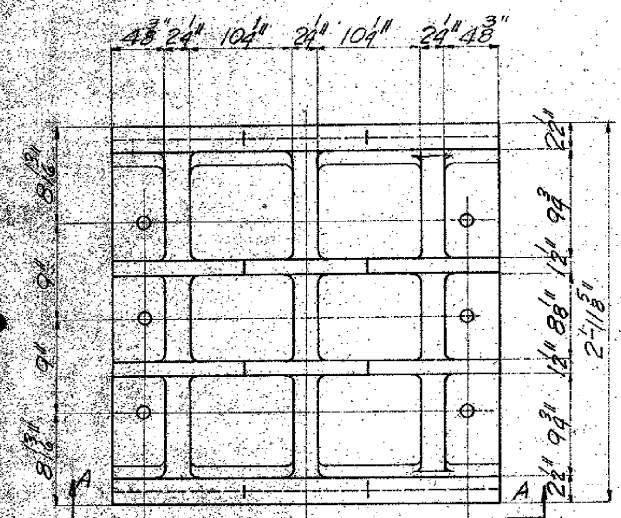 4 3/8" 2 1/4" 10 1/4" 2 1/4" 10 1/4" 2 1/4" 4 3/8"
8 13/16"
9"
9"
8 13/16"
2 1/2"
9 3/4
1 1/2"
8 1/8"
1 1/2"
9 3/4"
2 1/2"
2'-11 5/8"
A
A